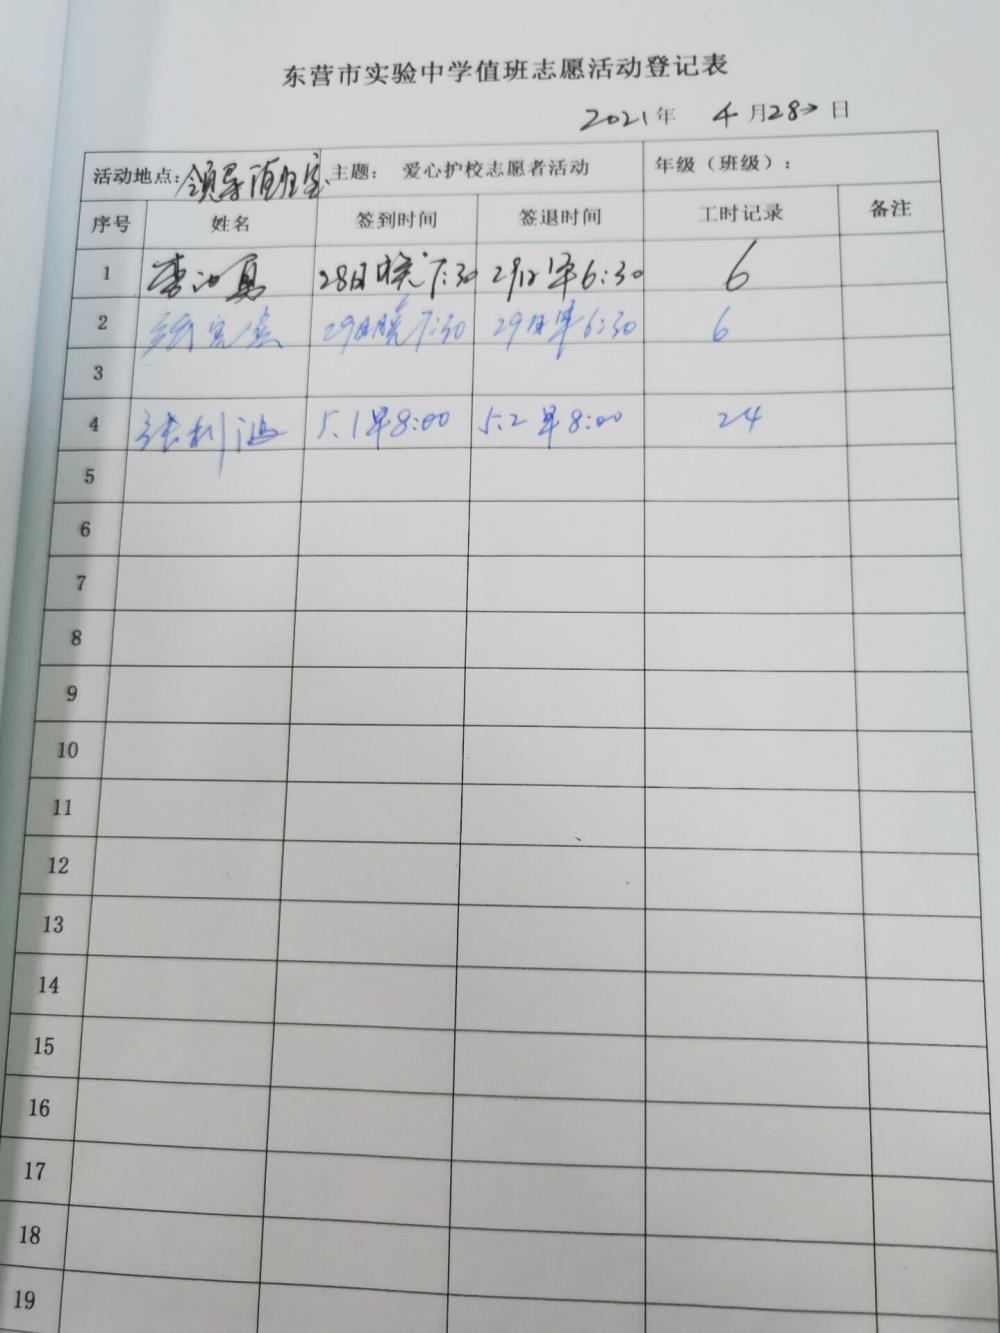 东营市实验中学值班志愿活动登记表
2021年 4月28日
活动地点:领导值班室 主题: 爱心护校志愿者活动 年级（班级）:
序号 姓名 签到时间 签退时间 工时记录 备注
1 李 28日晚7:30 29日早6:30 6
2 张 29日晚7:30 29日早6:30 6
3
4 张利鸿 5.1早8:00 5.2早8:00 24
5
6
7
8
9
10
11
12
13
14
15
16
17
18
19